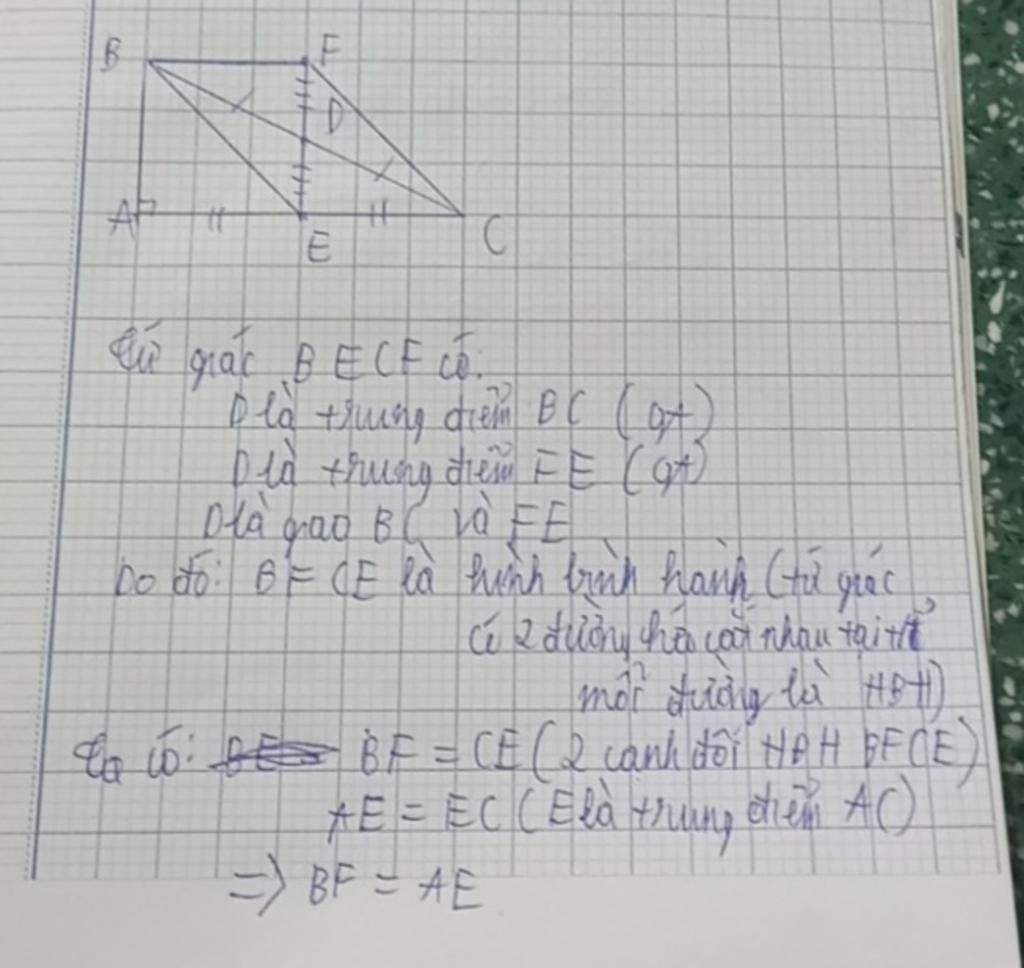 B F
D
A E C
Tứ giác BECF có:
D là trung điểm BC (gt)
D là trung điểm FE (gt)
D là giao BC và FE
Do đó: BFCE là hình bình hành (tứ giác
có 2 đường chéo cắt nhau tại tđ
mỗi đường là HBH)
Ta có: BF = CE (2 cạnh đối HBH BFCE)
AE = EC (E là trung điểm AC)
=> BF = AE